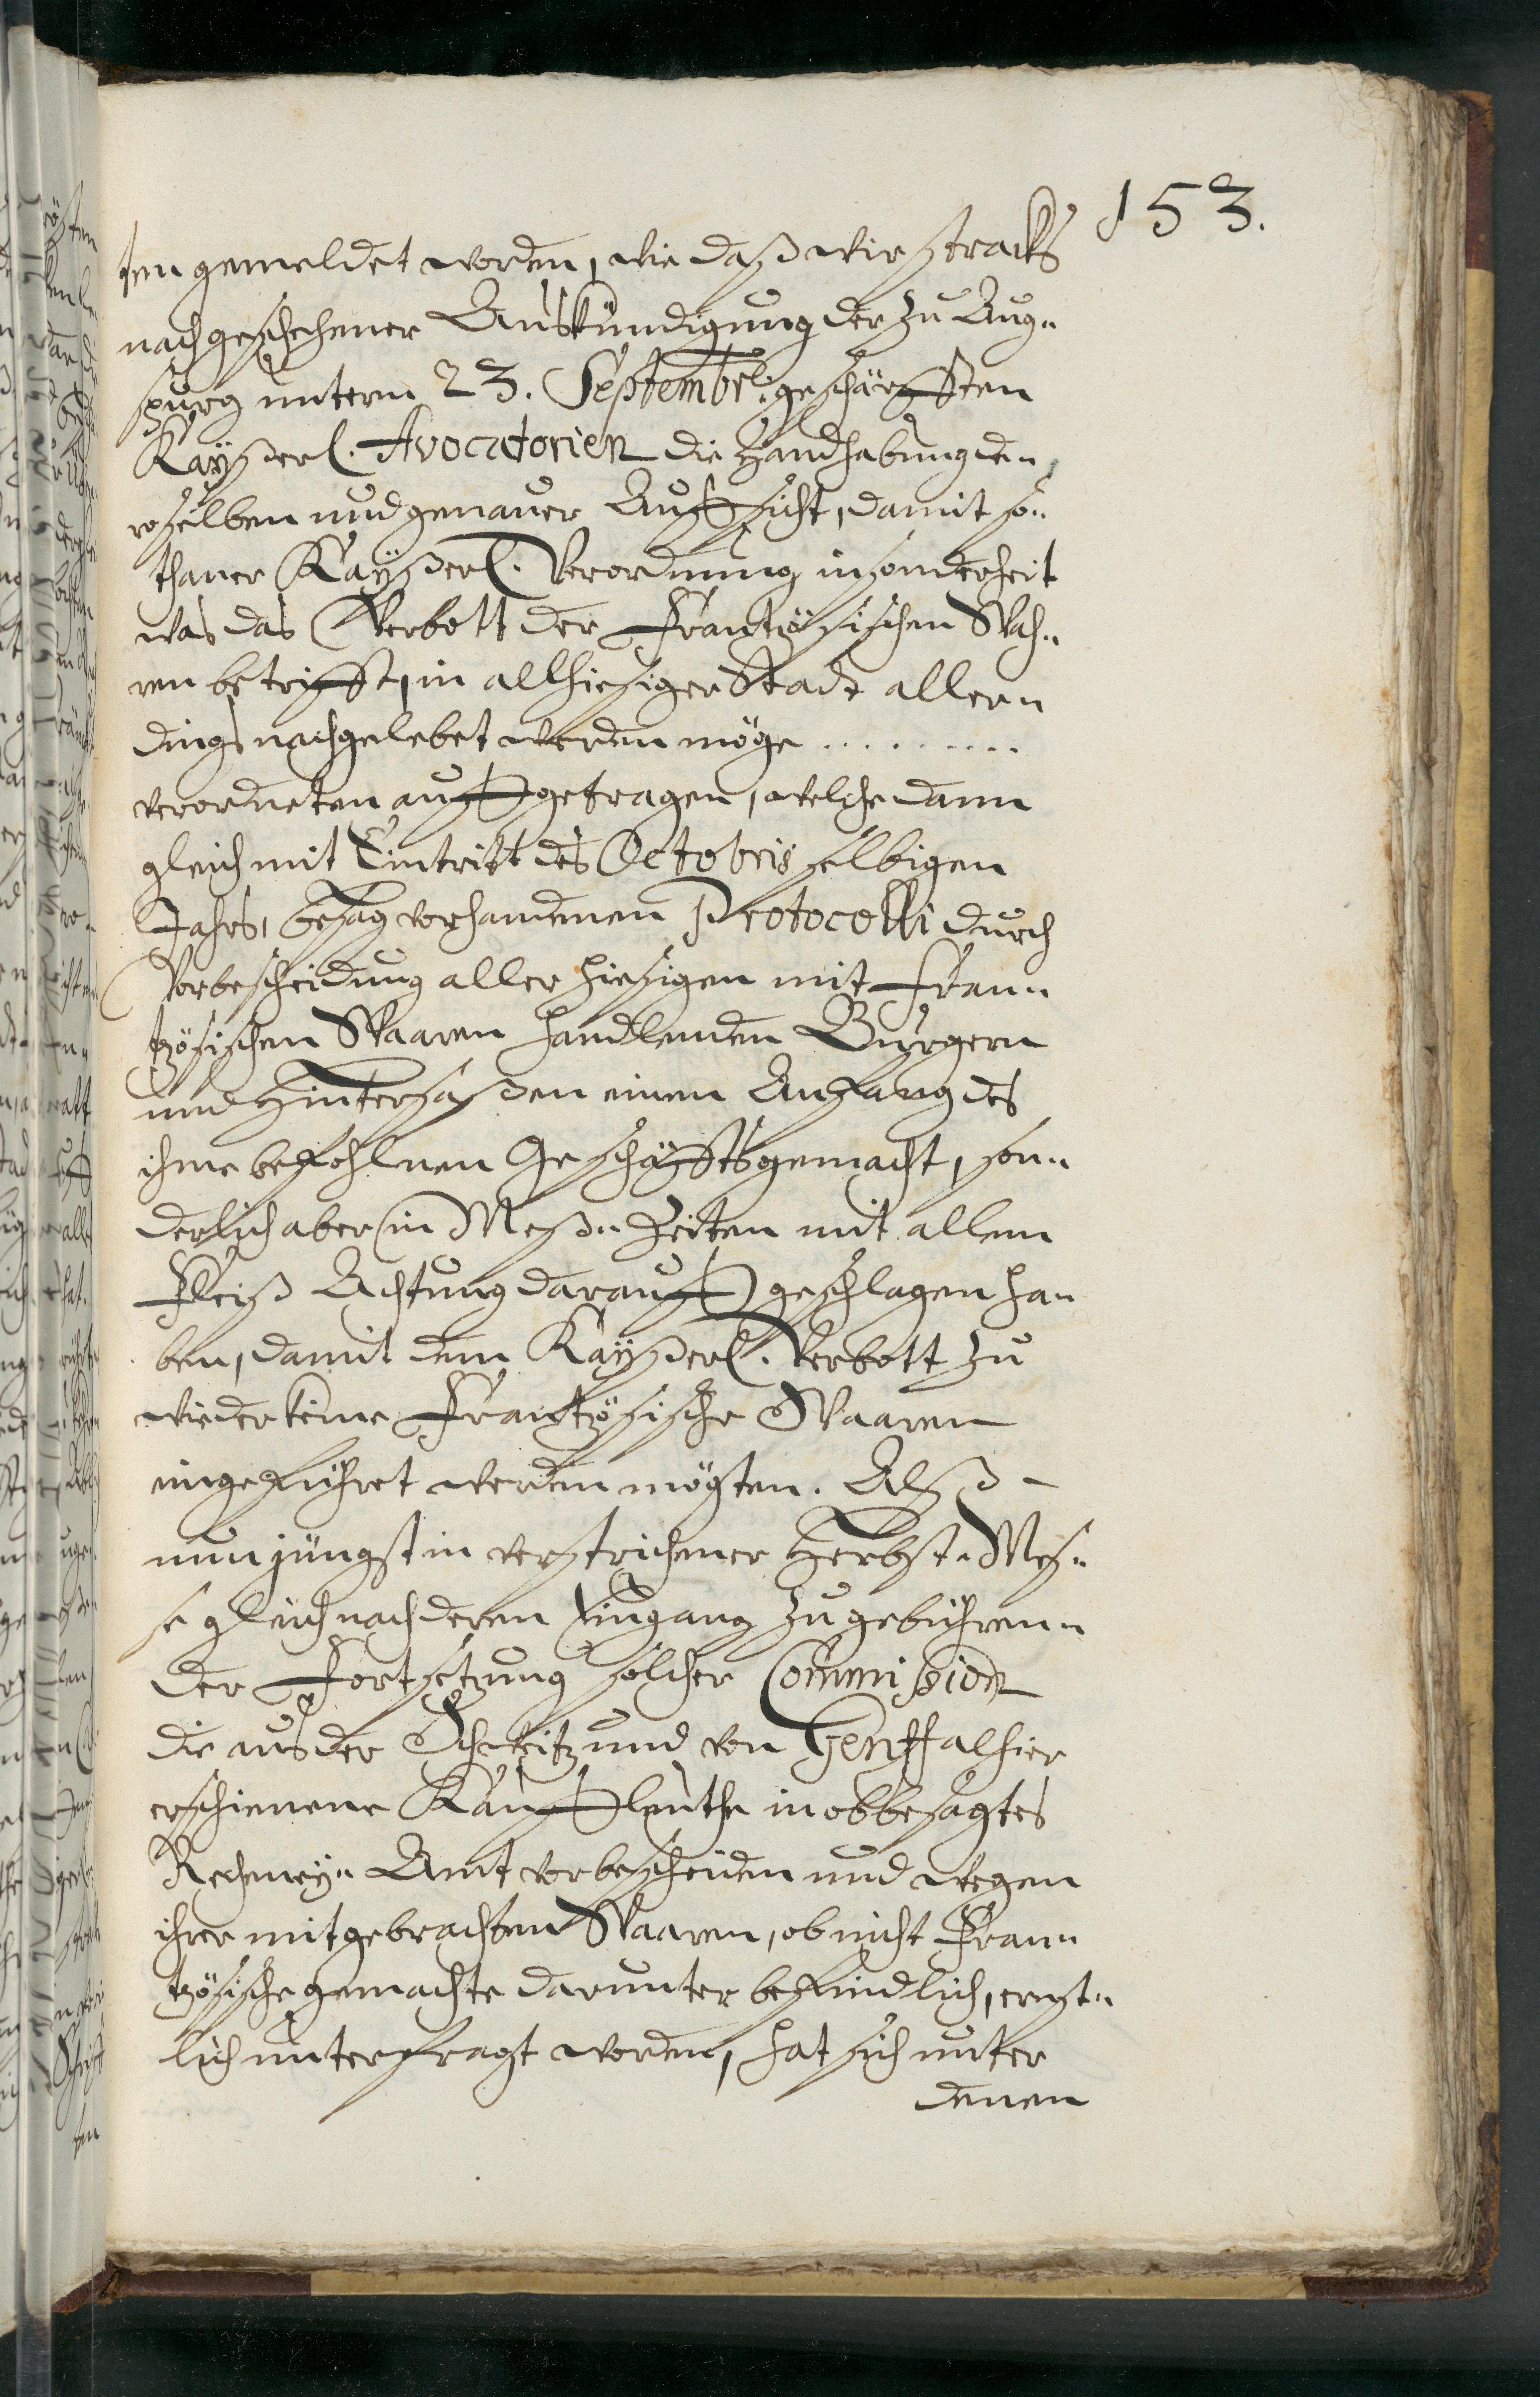 153.
ten gemeldet worden, wie daß wir stracks
nach geschehener Auskündigung der zu Aug-
spurg unterm 23. Septembr. geschärfften
Kayßerl. Avocatorien die Handhabung de-
roselben und genauer Auffsicht, damit so-
thaner Kayßerl. Verordnung insonderheit
was das Verbott der Frantzösischen Wah-
ren betrifft, in allhiesiger Stadt aller-
dings nachgelebet werden möge ..........
verordneten auffgetragen, welche dann
gleich mit Eintritt des Octobris selbigen
Jahrs, besag vorhandenen Protocolli durch
Vorbescheidung aller hiesigen mit Fran-
tzösischen Waaren handlenden Burgern
und Hintersaßen einen Anfang des
ihme befohlnen Geschäffts gemacht, son-
derlich aber in Meß-Zeiten mit allem
Fleiß Achtung darauff geschlagen ha-
ben, damit dem Kayßerl. Verbott zu
wieder keine Frantzösische Waaren
eingeführet werden mögten. Alß
nun jüngst in verstrichener Herbst-Mes-
se gleich nach deren Eingang zu gebühren-
der Fortsetzung solcher Commission
die aus der Schweitz und von Genff alhier
erschienene Kauffleuthe in obbesagtes
Rechney-Amt vorbescheiden und wegen
ihrer mitgebrachten Waaren, ob nicht Fran-
tzösische gemachte darunter befindlich, ernst-
lich unterfragt worden, hat sich unter
denen